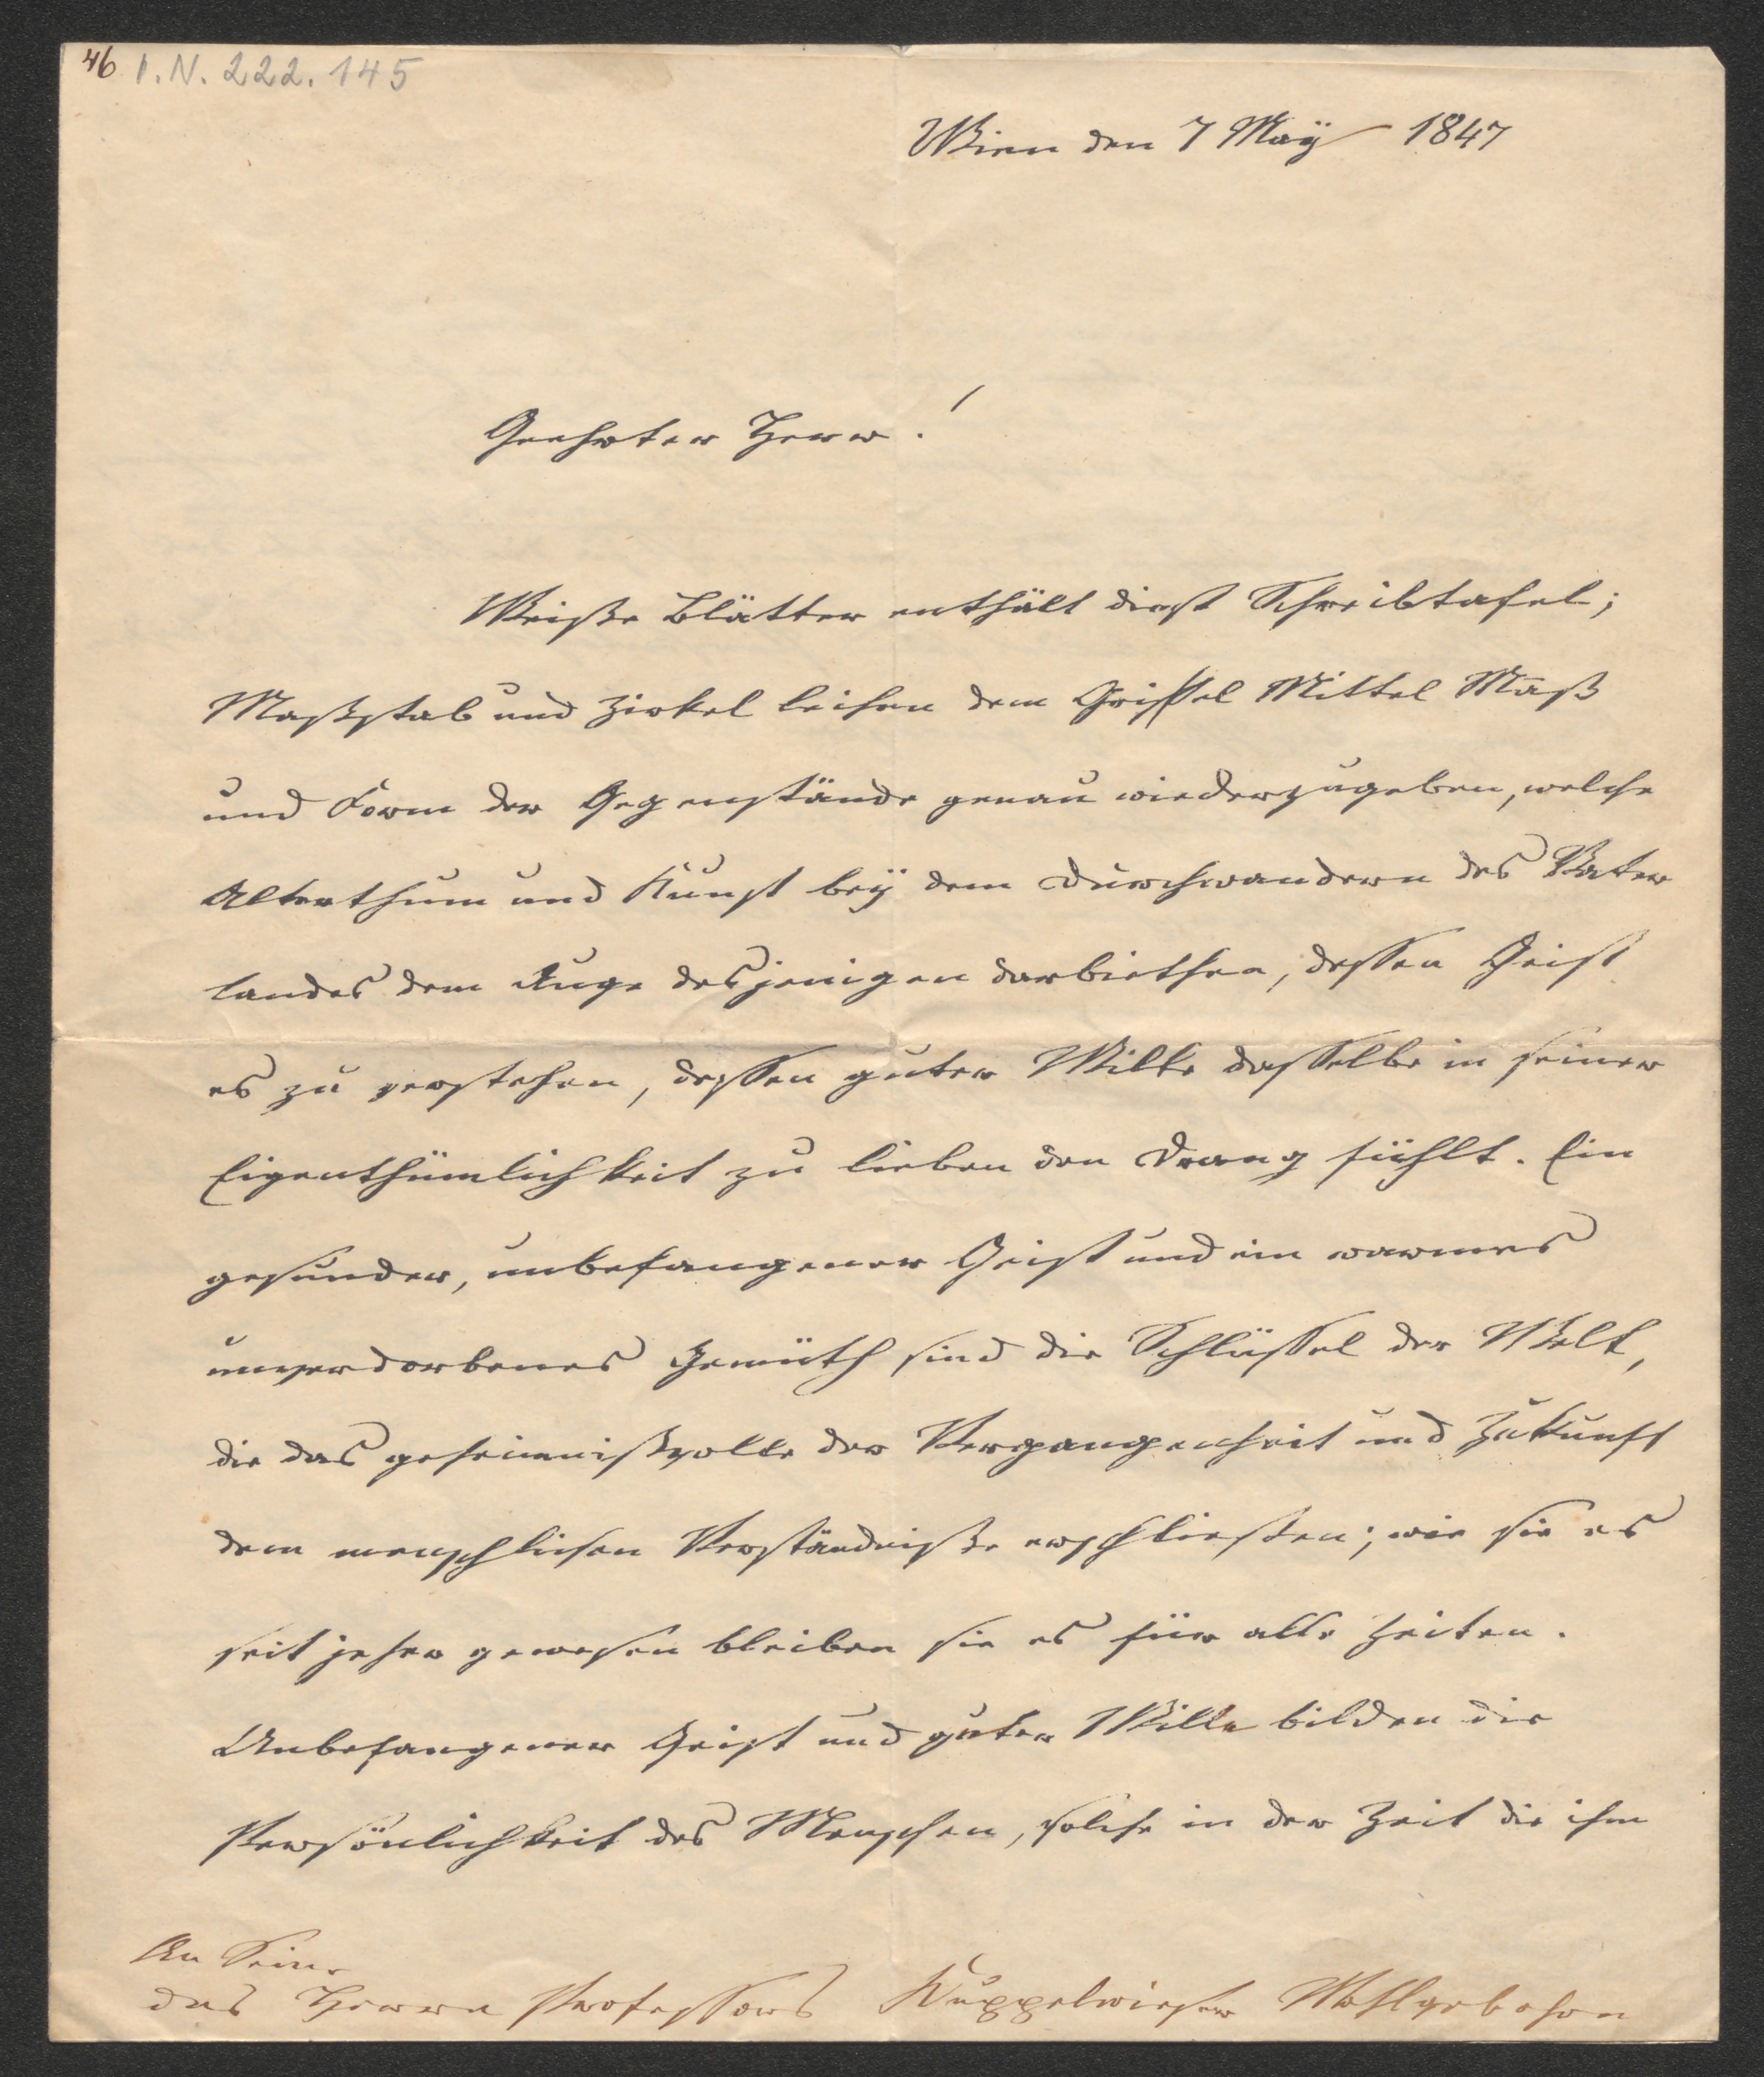 46 I.N. 222.145
Wien den 7 Maÿ 1847
Geehrter Herr!
Weiße Blätter enthält diese Schreibtafel;
Maßstab und Zirkel leihen dem Griffel Mittel Maß
und Form der Gegenstände genau wiederzugeben, welche
Alterthum und Kunst beÿ dem Durchwandern des Vater
landes dem Auge desjenigen darbiethen, dessen Geist
es zu verstehen, dessen guter Wille dasselbe in seiner
Eigenthümlichkeit zu lieben den Drang fühlt. Ein
gesunder, unbefangener Geist und ein warmes
unverdorbenes Gemüth sind die Schlüssel der Welt,
die das geheimnißvolle der Vergangenheit und Zukunft
dem menschlichen Verständniße erschließen; wie sie es
seit jeher gewesen bleiben sie es für alle Zeiten.
Unbefangener Geist und guter Wille bilden die
Persönlichkeit des Menschen, solche in der Zeit die ihm
An Seine
des Herrn Professors Kuppelwieser Wohlgebohren